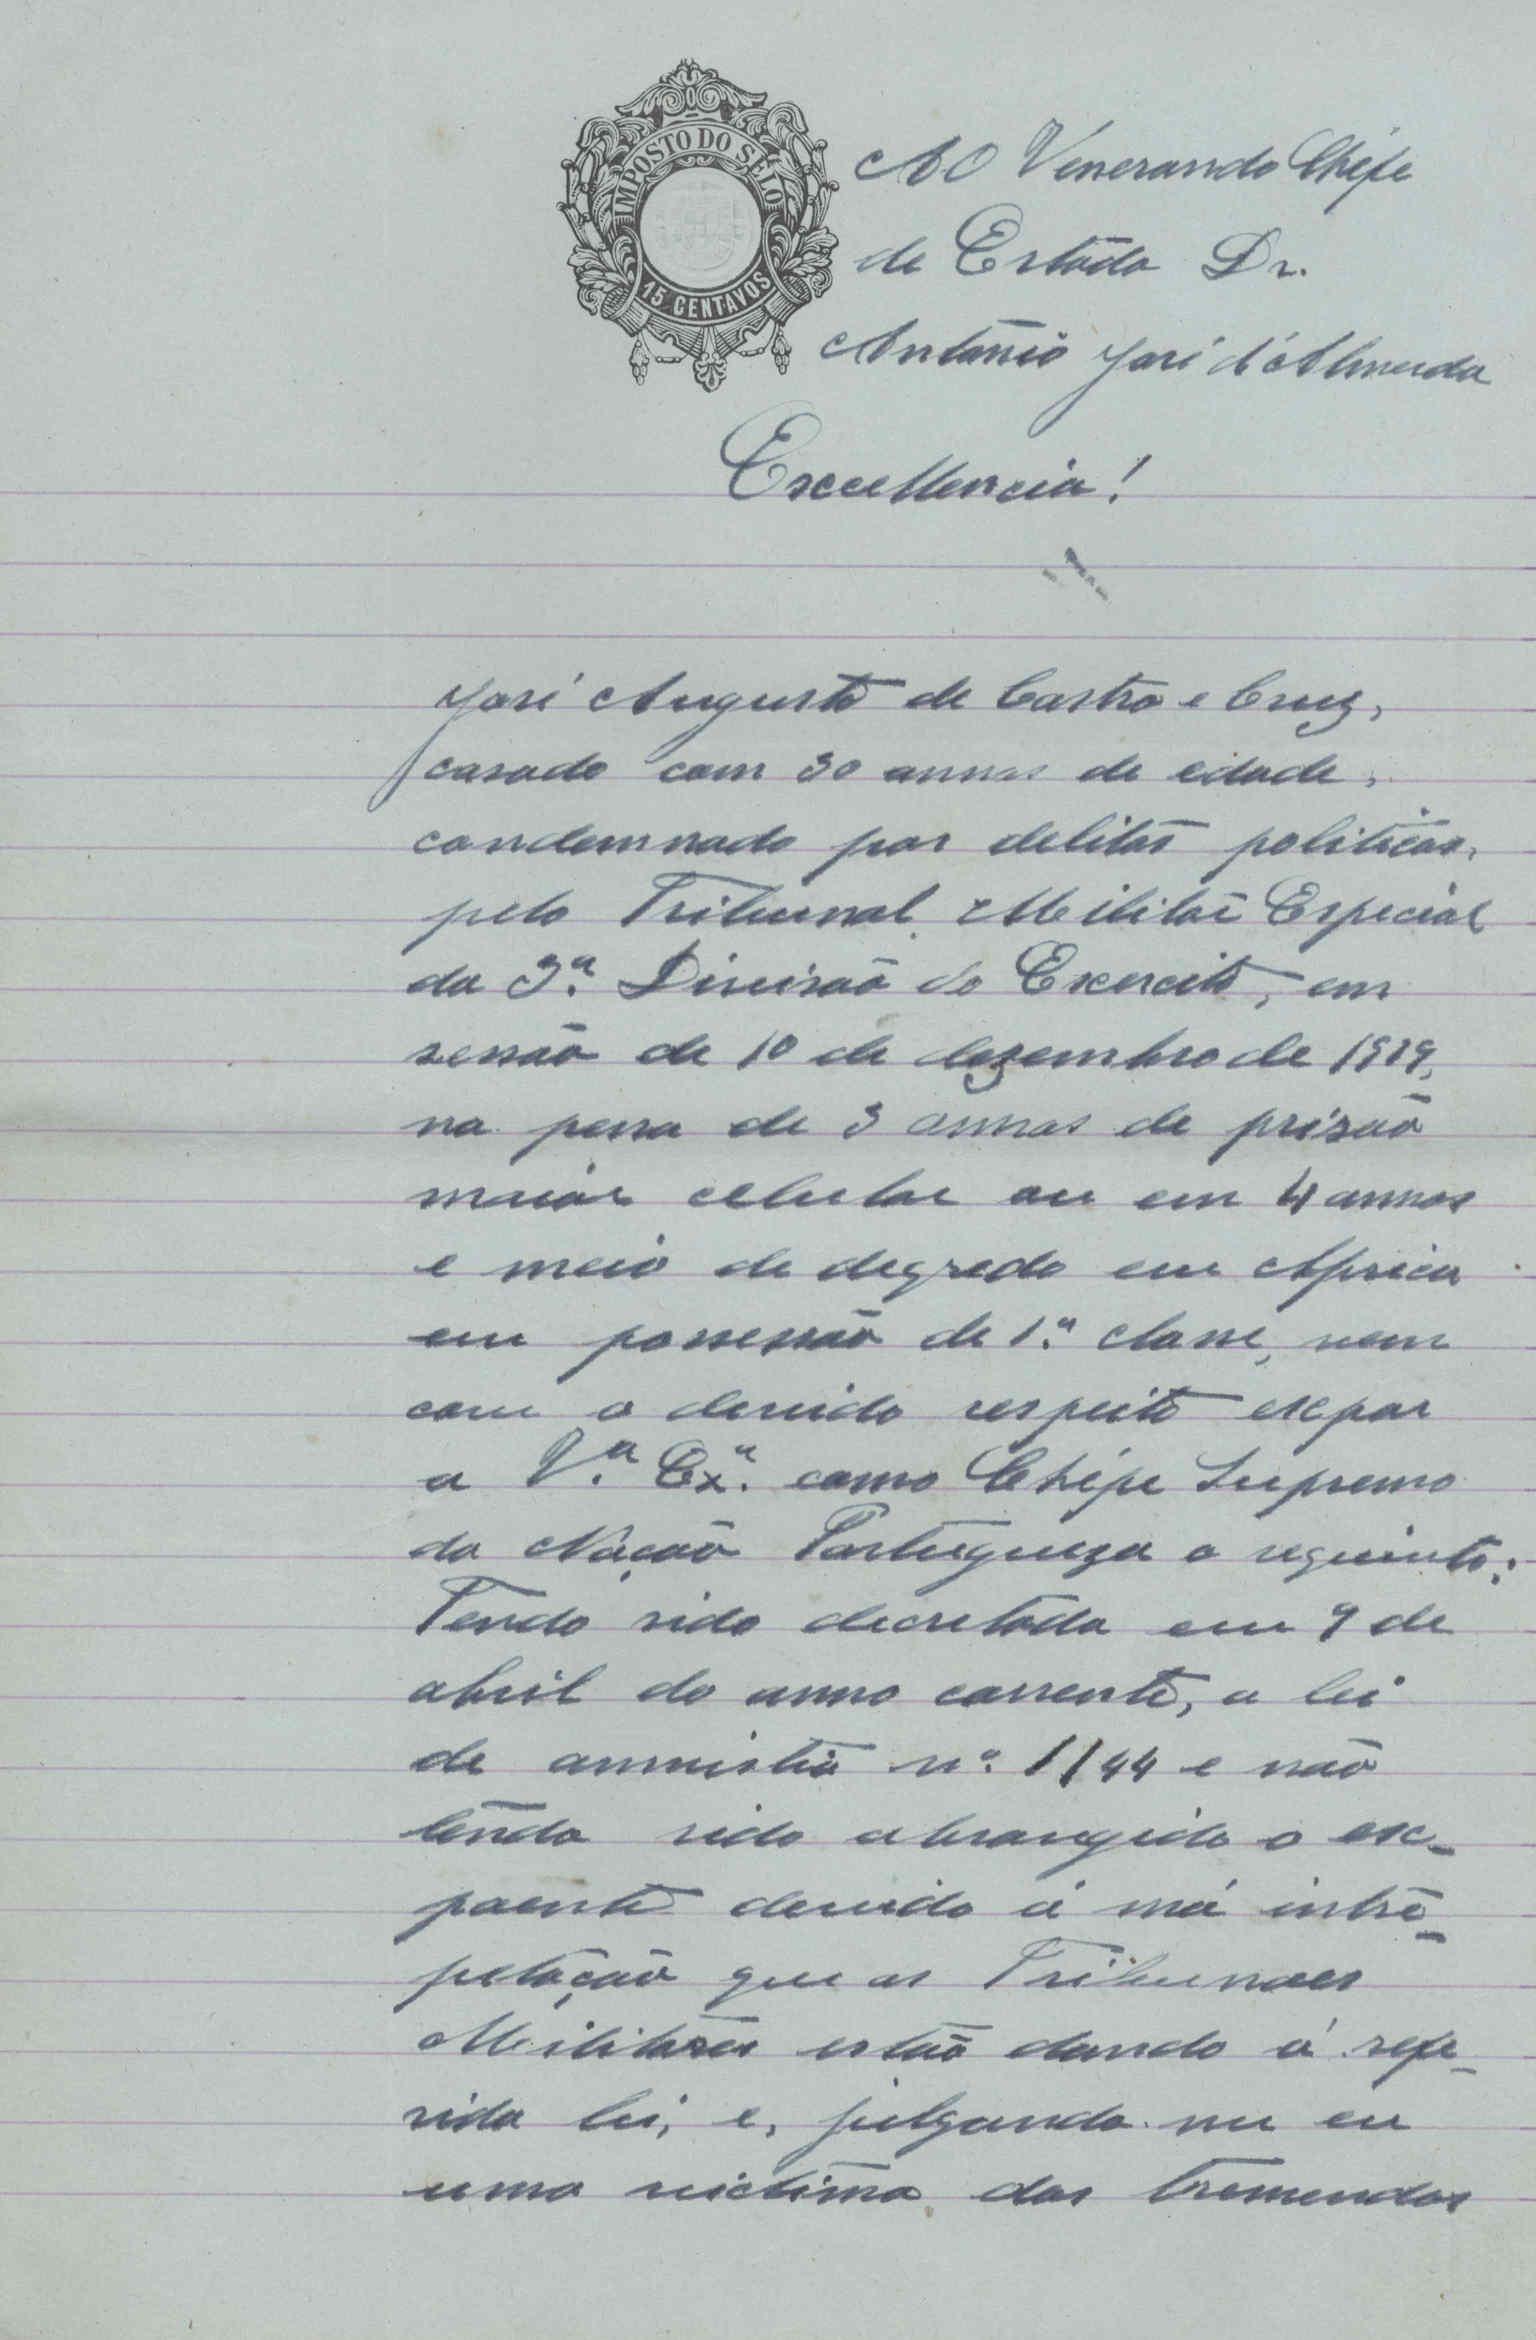 IMPOSTO DO SELO
15 CENTAVOS
AO Venerando Chéfe
de Estado Dr.
Antonio José d'Almeida
Excellencia!
José Augusto de Castro e Cruz,
casado com 30 annos de edade,
condemnado por delitos politicos,
pelo Tribunal Militar Especial
da 3.ª Divisão do Exercito, em
sessão de 10 de dezembro de 1919,
na pena de 3 annos de prisão
maior celular ou em 4 annos
e meio de degredo em Africa
em possessão de 1.ª classe, vem
com o devido respeito expor
a V.ª Ex.ª como Chéfe Supremo
da Nação Portugueza o seguinte:
Tendo sido decretada em 9 de
abril do anno corrente, a lei
de amnistia nº. 1144 e não
tendo sido abrangido o ex-
poente devido á má intre-
petação que os Tribunaes
Militares estão dando á refe-
rida lei, e, julgando me eu
uma victima das tremendas